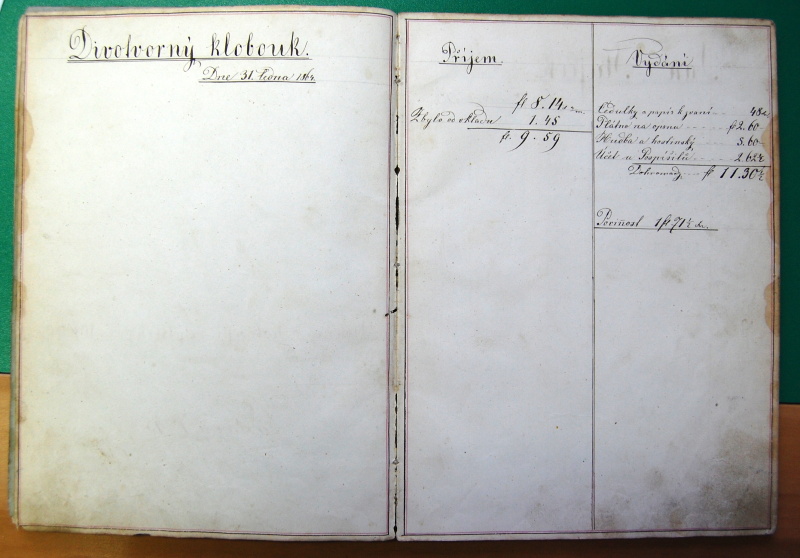 Divotvorný klobouk.
Dne 31. ledna 1864.
Příjem.
fl 8. 14
Zbylo od vkladu 1. 45
fl. 9. 59
Vydání
Cedulky a papír k psaní 48
Plátno na oponu fl 2. 60
Hudba a hostinský 5. 60
Účet u Pospíšilů 2. 62½
Dohromady fl 11. 30½
Povinnost 1 fl 71½